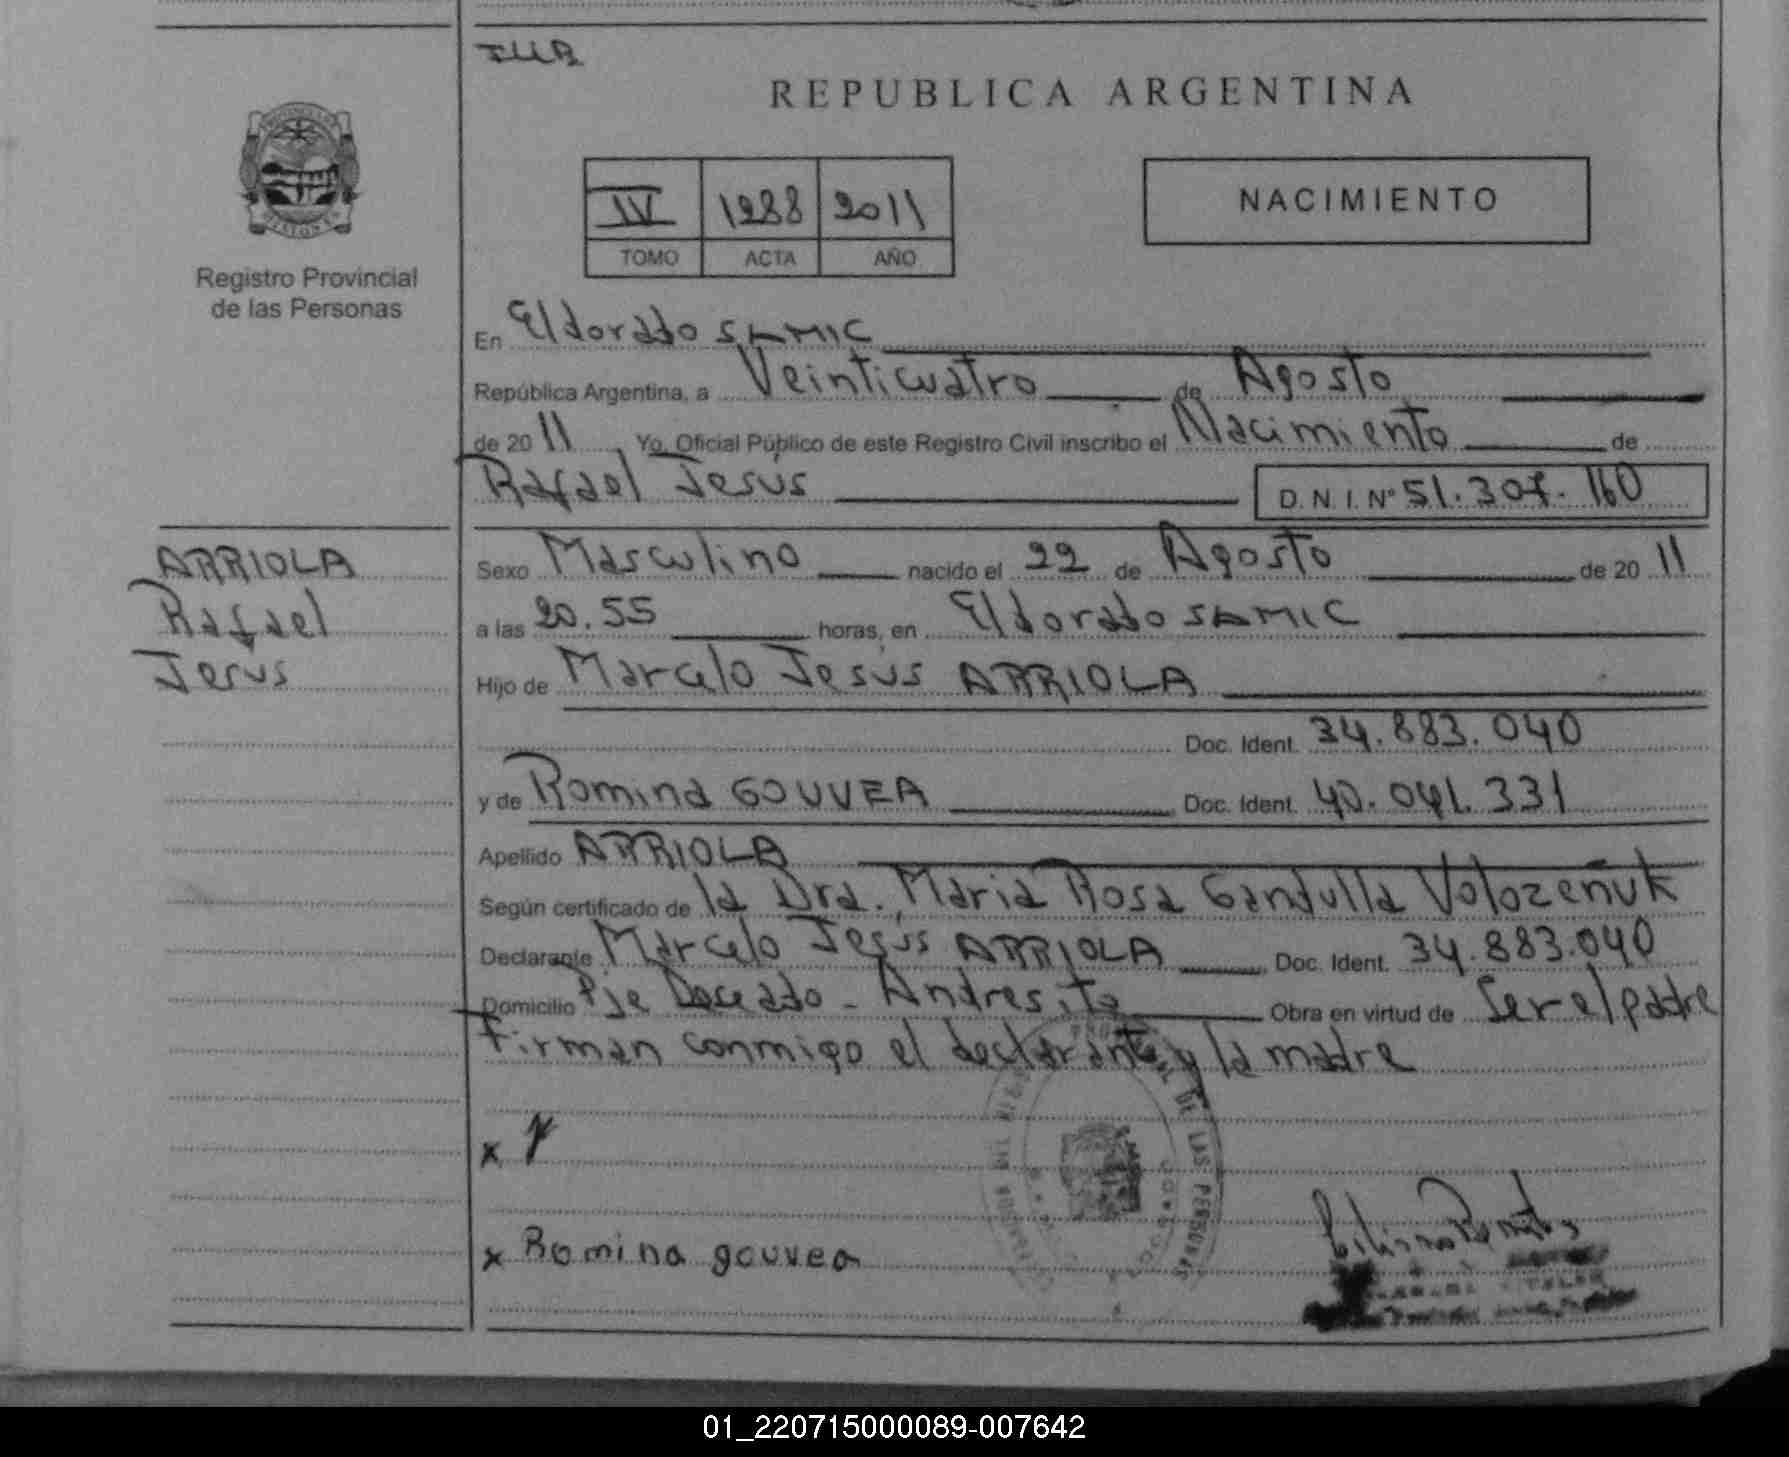 REPUBLICA ARGENTINA
IV 1288 2011
TOMO ACTA AÑO
NACIMIENTO
Registro Provincial
de las Personas
En Eldorado SAMIC
República Argentina, a Veinticuatro de Agosto
de 20 11 Yo, Oficial Público de este Registro Civil inscribo el Nacimiento de
Rafael Jesús D.N.I. Nº 51.307.160
ARRIOLA
Rafael
Jesus
Sexo Masculino nacido el 22 de Agosto de 20 11
a las 20.55 horas, en Eldorado SAMIC
Hijo de Marcelo Jesús ARRIOLA
Doc. Ident. 34.883.040
y de Romina GOUVEA Doc. Ident. 40.041.331
Apellido ARRIOLA
Según certificado de la Dra. Maria Rosa Gandulla Volozeñuk
Declarante Marcelo Jesús ARRIOLA Doc. Ident. 34.883.040
Domicilio Pje Doceado - Andresito Obra en virtud de Ser el padre
Firman conmigo el declarante y la madre
DE LAS PERSONAS
x
x Romina gouvea
01_220715000089-007642